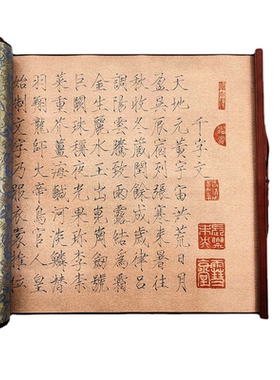 千字文
天地元黃宇宙洪荒日月
盈昃辰宿列張寒來暑往
秋收冬藏閏餘成歲律呂
調陽雲騰致雨露結為霜
金生麗水玉出崑崗劍號
巨闕珠稱夜光果珍李柰
菜重芥薑海鹹河淡鱗潛
羽翔龍師火帝鳥官人皇
始制文字乃服衣裳推位